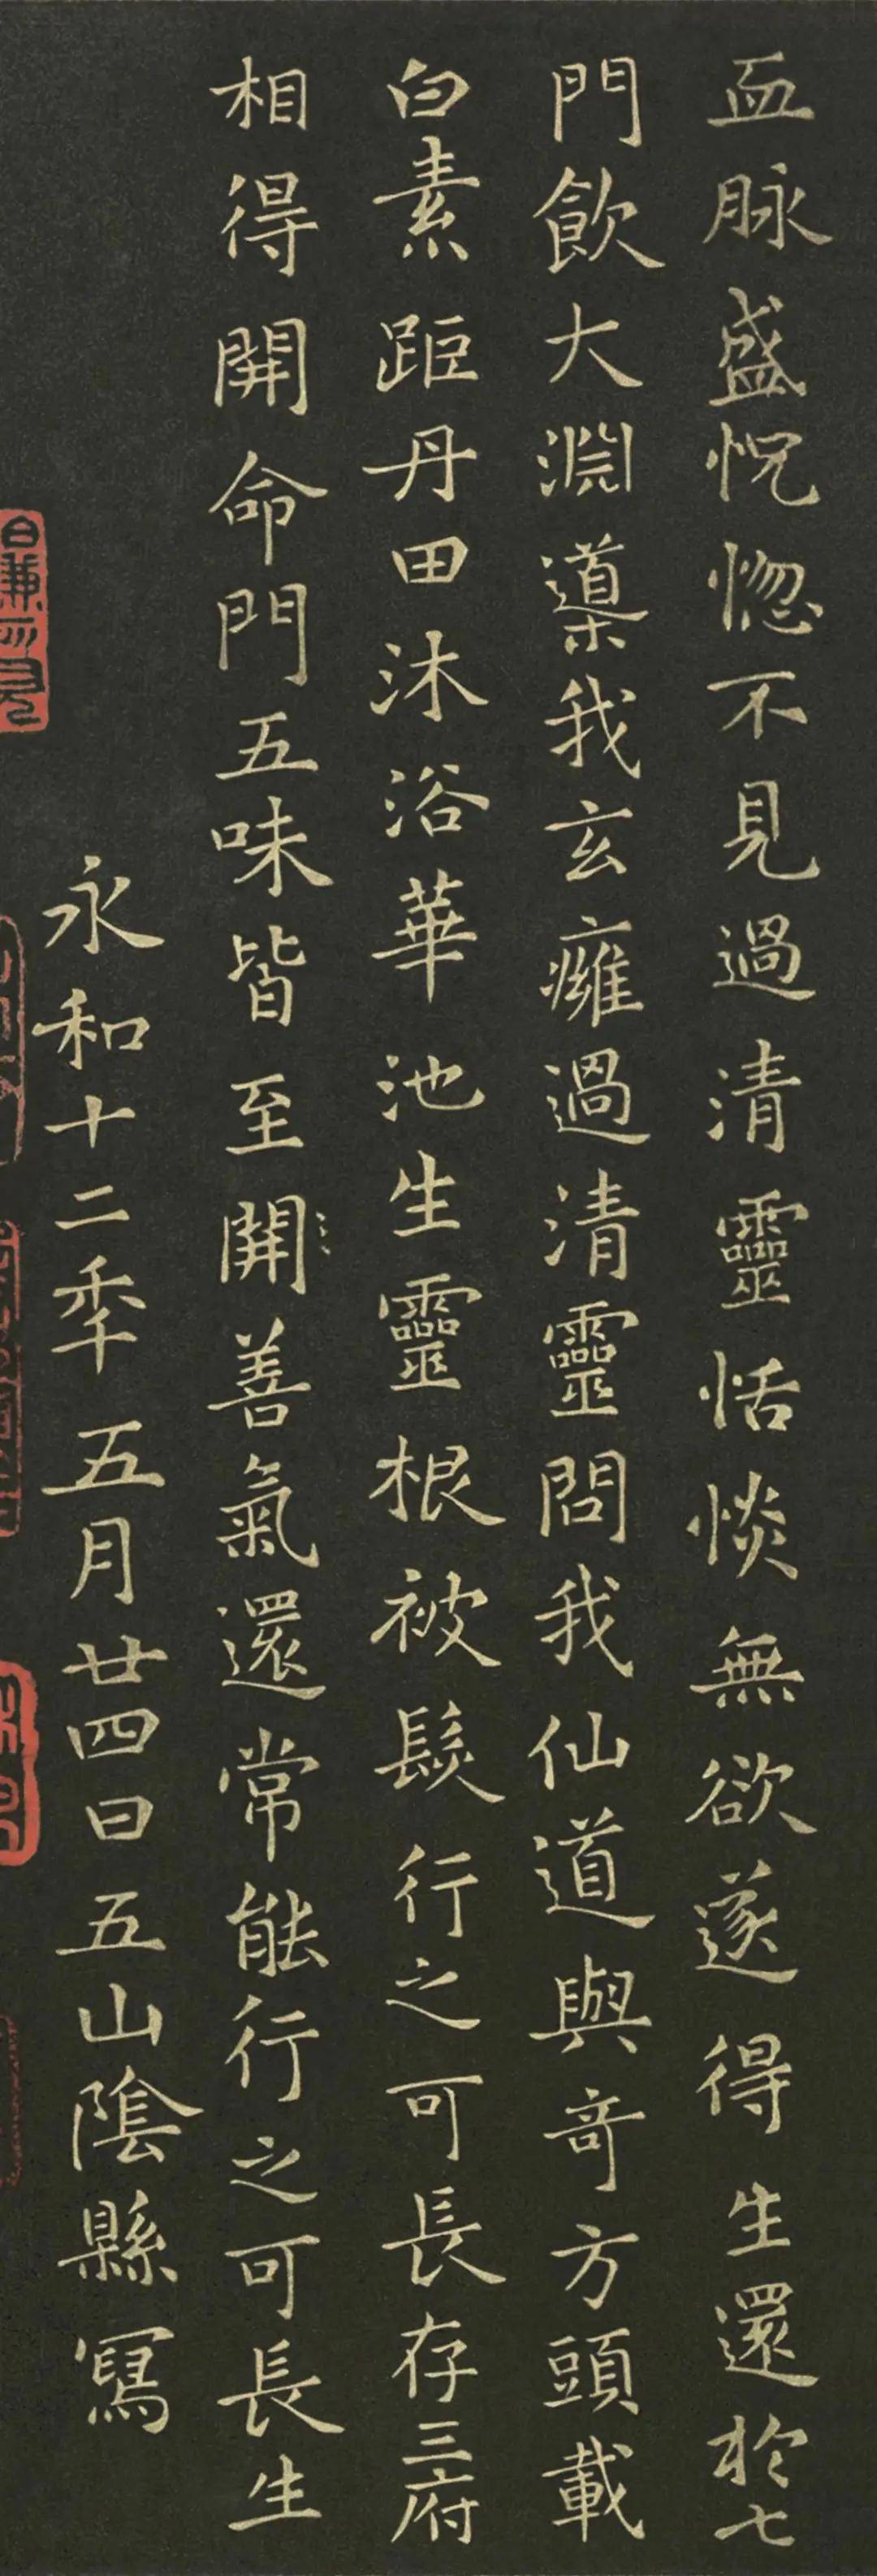 血脉盛怳惚不見過清靈恬惔無欲遂得生還於七
門飲大淵導我玄癰過清靈問我仙道與奇方頭載
白素距丹田沐浴華池生靈根被髮行之可長存三府
相得開命門五味皆至開善氣還常能行之可長生
永和十二年五月廿四日五山陰縣寫